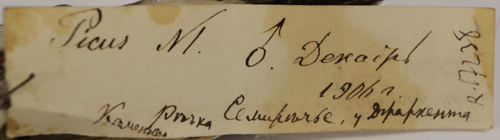 Picus M. ♂. Декабрь
1906 г.
Каменка Рѣчка Семирѣчье, у Джаркента